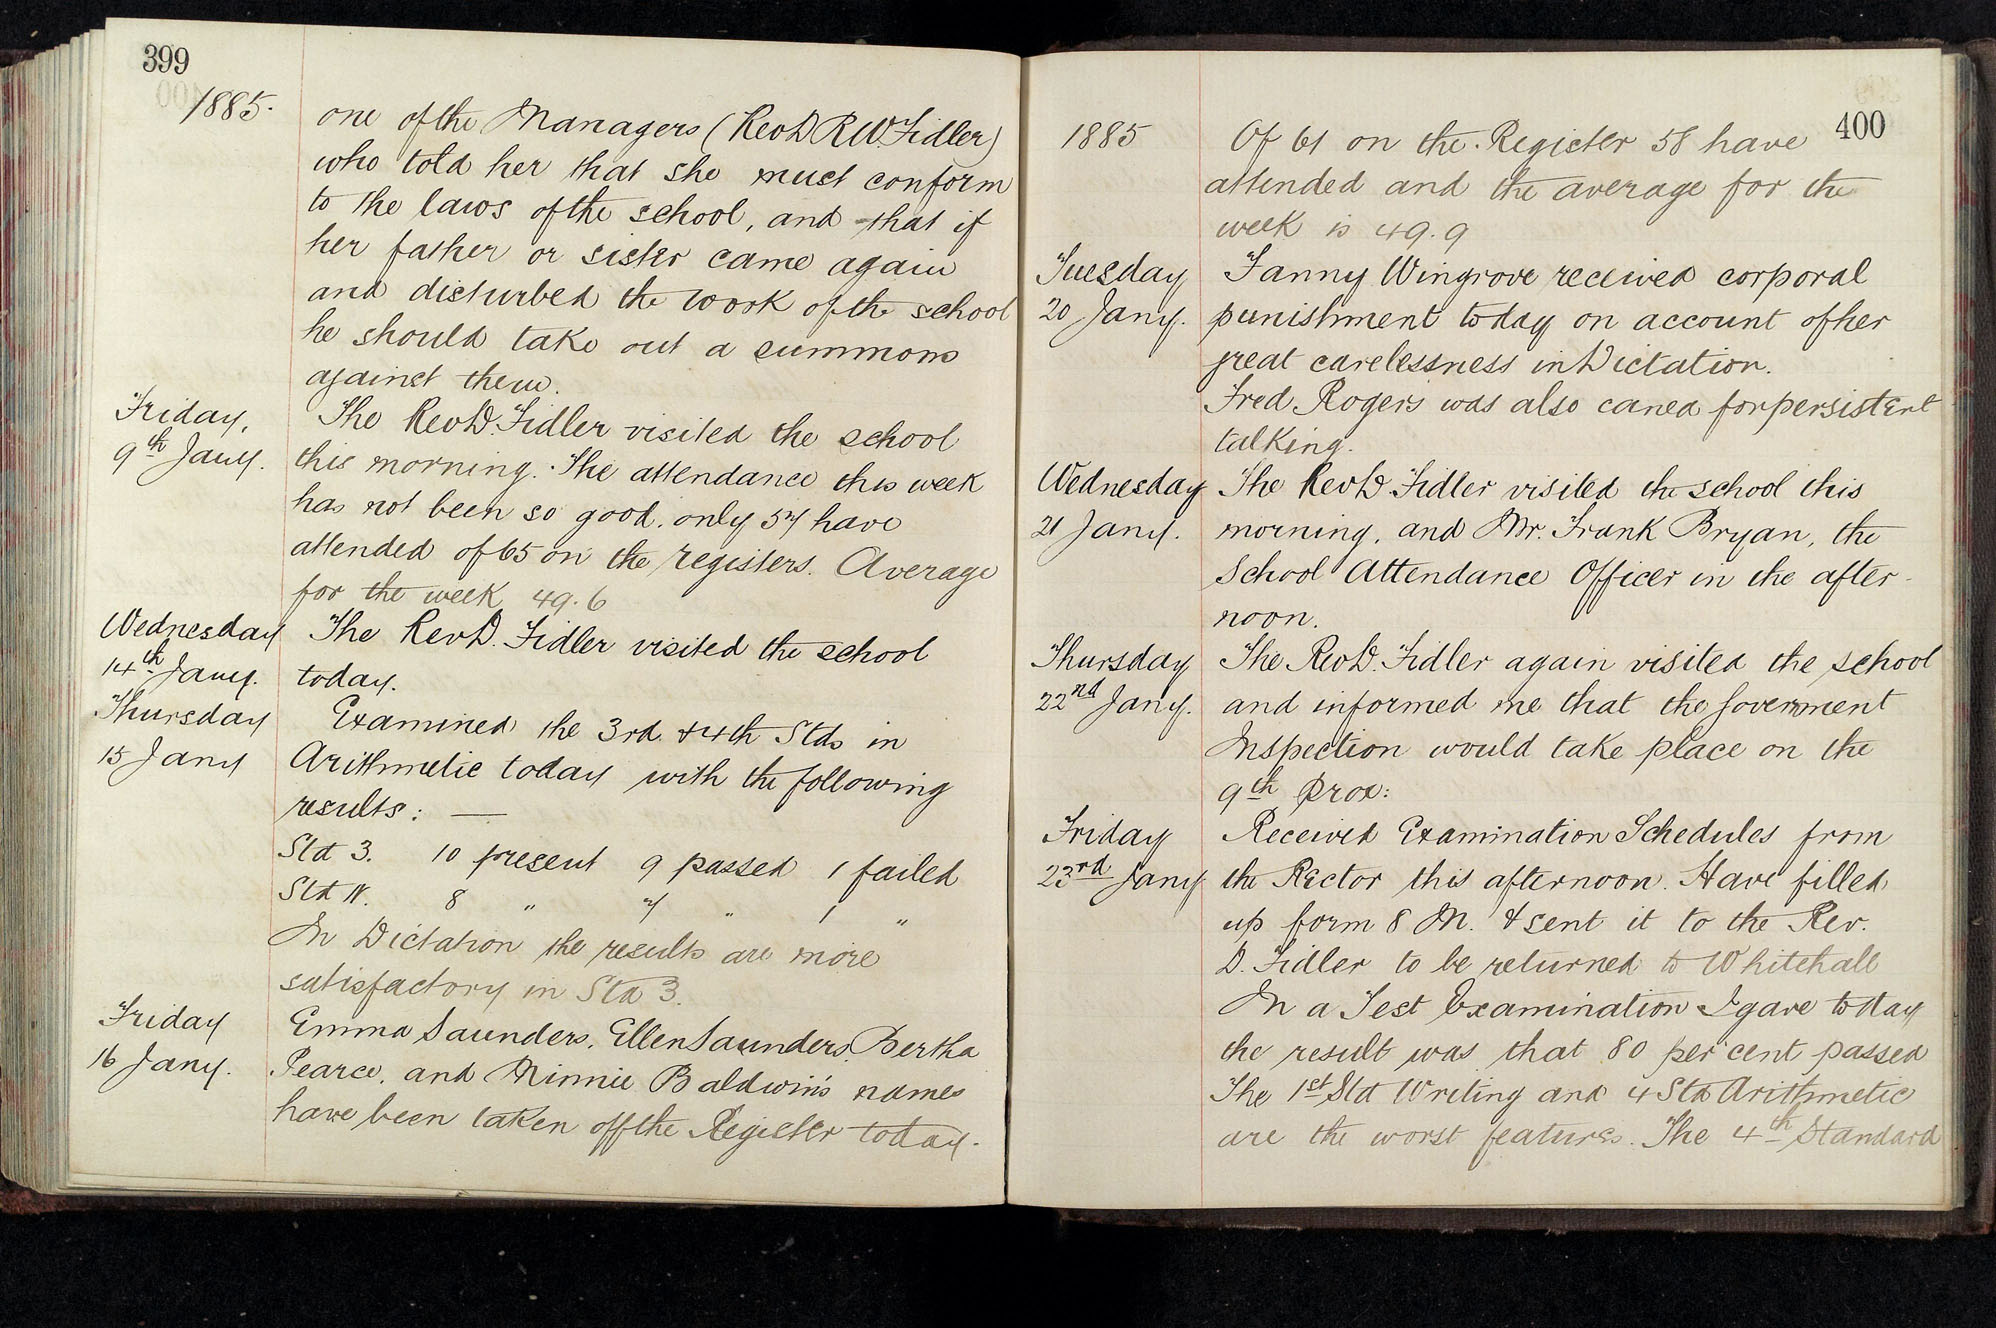 399
1885.
one of the Managers (RevD R W. Fidler)
who told her that she must conform
to the laws of the school, and that if
her father or sister came again
and disturbed the work of the school
he should take out a summons
against them.
Friday, The RevD. Fidler visited the school
9th Jany. this morning. The attendance this week
has not been so good. only 57 have
attended of 65 on the registers. Average
for the week 49.6
Wednesday The RevD. Fidler visited the school
14th Jany. today.
Thursday Examined the 3rd & 4th Stds in
15 Jany Arithmetic today with the following
results: —
Std 3. 10 present 9 passed 1 failed
Std IV. 8 " 7 " 1 "
In Dictation the results are more
satisfactory in Std 3.
Friday Emma Saunders, Ellen Saunders, Bertha
16 Jany. Pearce, and Minnie Baldwin's names
have been taken off the Register today.
400
1885 Of 61 on the Register 58 have
attended and the average for the
week is 49.9
Tuesday Fanny Wingrove received corporal
20 Jany. punishment today on account of her
great carelessness in Dictation.
Fred Rogers was also caned for persistent
talking.
Wednesday The RevD. Fidler visited the school this
21 Jany. morning, and Mr. Frank Bryan, the
School Attendance Officer in the after-
noon.
Thursday The RevD. Fidler again visited the school
22nd Jany. and informed me that the Government
Inspection would take place on the
9th prox:
Friday Received Examination Schedules from
23rd Jany the Rector this afternoon. Have filled
up form 8 M. & sent it to the Rev.
D. Fidler to be returned to Whitehall
In a Test Examination I gave today
the result was that 80 per cent passed
The 1st Std Writing and 4 Std Arithmetic
are the worst features. The 4th Standard